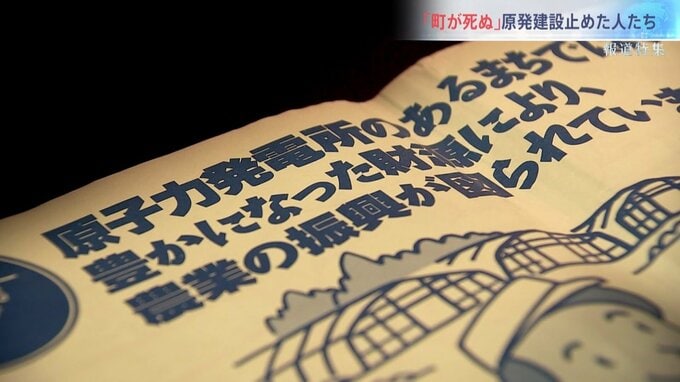 「町が死ぬ」原発建設止めた人たち
報道特集
原子力発電所のあるまちで
豊かになった財源により、
農業の振興が図られていま